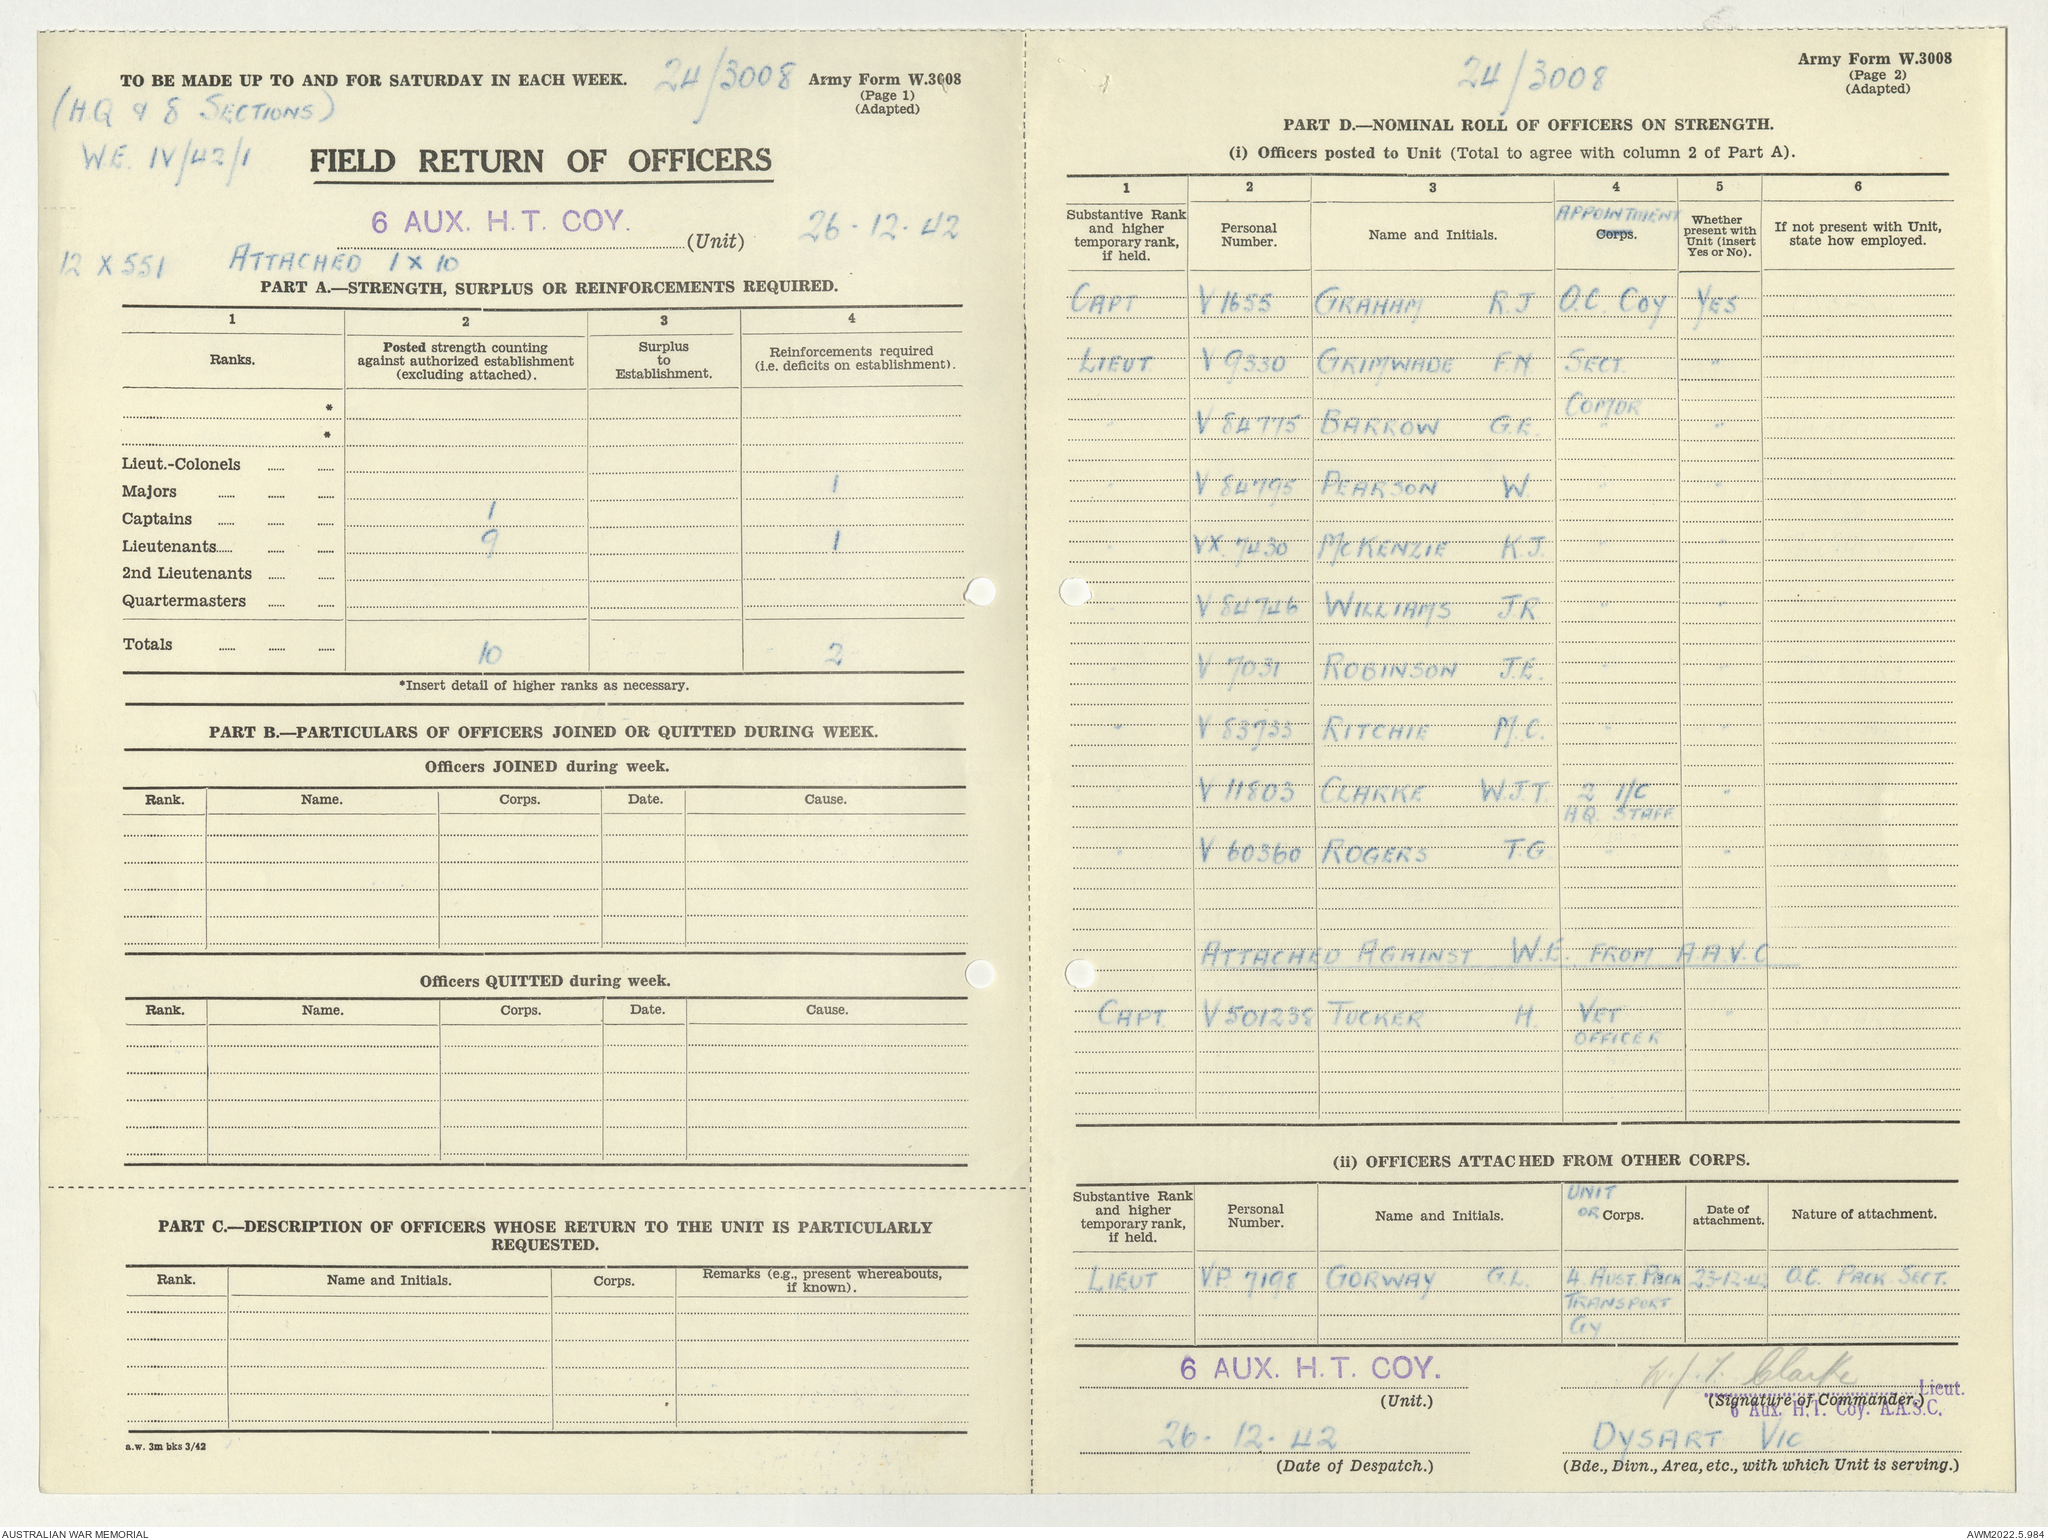 TO BE MADE UP TO AND FOR SATURDAY IN EACH WEEK. 24/3008 Army Form W.3008
(Page 1)
(Adapted)
(H.Q & 8 SECTIONS)
W.E. IV/42/1
FIELD RETURN OF OFFICERS
6 AUX. H.T. COY. (Unit) 26-12-42
12 X 551 ATTACHED 1 X 10
PART A.—STRENGTH, SURPLUS OR REINFORCEMENTS REQUIRED.
1 2 3 4
Ranks. Posted strength counting against authorized establishment (excluding attached). Surplus to Establishment. Reinforcements required (i.e. deficits on establishment).
*
*
Lieut.-Colonels
Majors 1
Captains 1
Lieutenants 9 1
2nd Lieutenants
Quartermasters
Totals 10 2
*Insert detail of higher ranks as necessary.
PART B.—PARTICULARS OF OFFICERS JOINED OR QUITTED DURING WEEK.
Officers JOINED during week.
Rank. Name. Corps. Date. Cause.
Officers QUITTED during week.
Rank. Name. Corps. Date. Cause.
PART C.—DESCRIPTION OF OFFICERS WHOSE RETURN TO THE UNIT IS PARTICULARLY
REQUESTED.
Rank. Name and Initials. Corps. Remarks (e.g., present whereabouts, if known).
a.w. 3m bks 3/42
24/3008 Army Form W.3008
(Page 2)
(Adapted)
PART D.—NOMINAL ROLL OF OFFICERS ON STRENGTH.
(i) Officers posted to Unit (Total to agree with column 2 of Part A).
1 2 3 4 5 6
Substantive Rank and higher temporary rank, if held. Personal Number. Name and Initials. APPOINTMENT Corps. Whether present with Unit (insert Yes or No). If not present with Unit, state how employed.
CAPT V 1655 GRAHAM R.J O.C. COY YES
LIEUT. V 9330 GRIMWADE F.N SECT. "
COMDR
" V 84775 BARROW G.E. " "
" V 84795 PEARSON W. " "
" VX. 7430 McKENZIE K.J. " "
" V 84746 WILLIAMS J.R " "
" V 7031 ROBINSON J.E. " "
" V 83733 RITCHIE M.C. " "
" V 11803 CLARKE W.J.T. 2 I/C "
HQ. STAFF
" V 60360 ROGERS T.G " "
ATTACHED AGAINST W.E. FROM A.A.V.C
CAPT. V 501238 TUCKER H. VET "
OFFICER
(ii) OFFICERS ATTACHED FROM OTHER CORPS.
Substantive Rank and higher temporary rank, if held. Personal Number. Name and Initials. UNIT OR Corps. Date of attachment. Nature of attachment.
LIEUT VP. 7198 GORWAY G.L. 4 AUST. PACK 23-12-42 O.C. PACK. SECT.
TRANSPORT
Coy
6 AUX. H.T. COY. W.J.T. Clarke Lieut.
(Unit.) (Signature of Commander.)
6 Aux. H.T. Coy. A.A.S.C.
26-12-42 DYSART VIC
(Date of Despatch.) (Bde., Divn., Area, etc., with which Unit is serving.)
AUSTRALIAN WAR MEMORIAL AWM2022.5.984